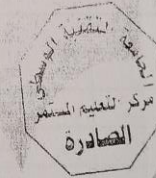 الجامعة التقنية الوسطى
مركز التعليم المستمر
الصادرة